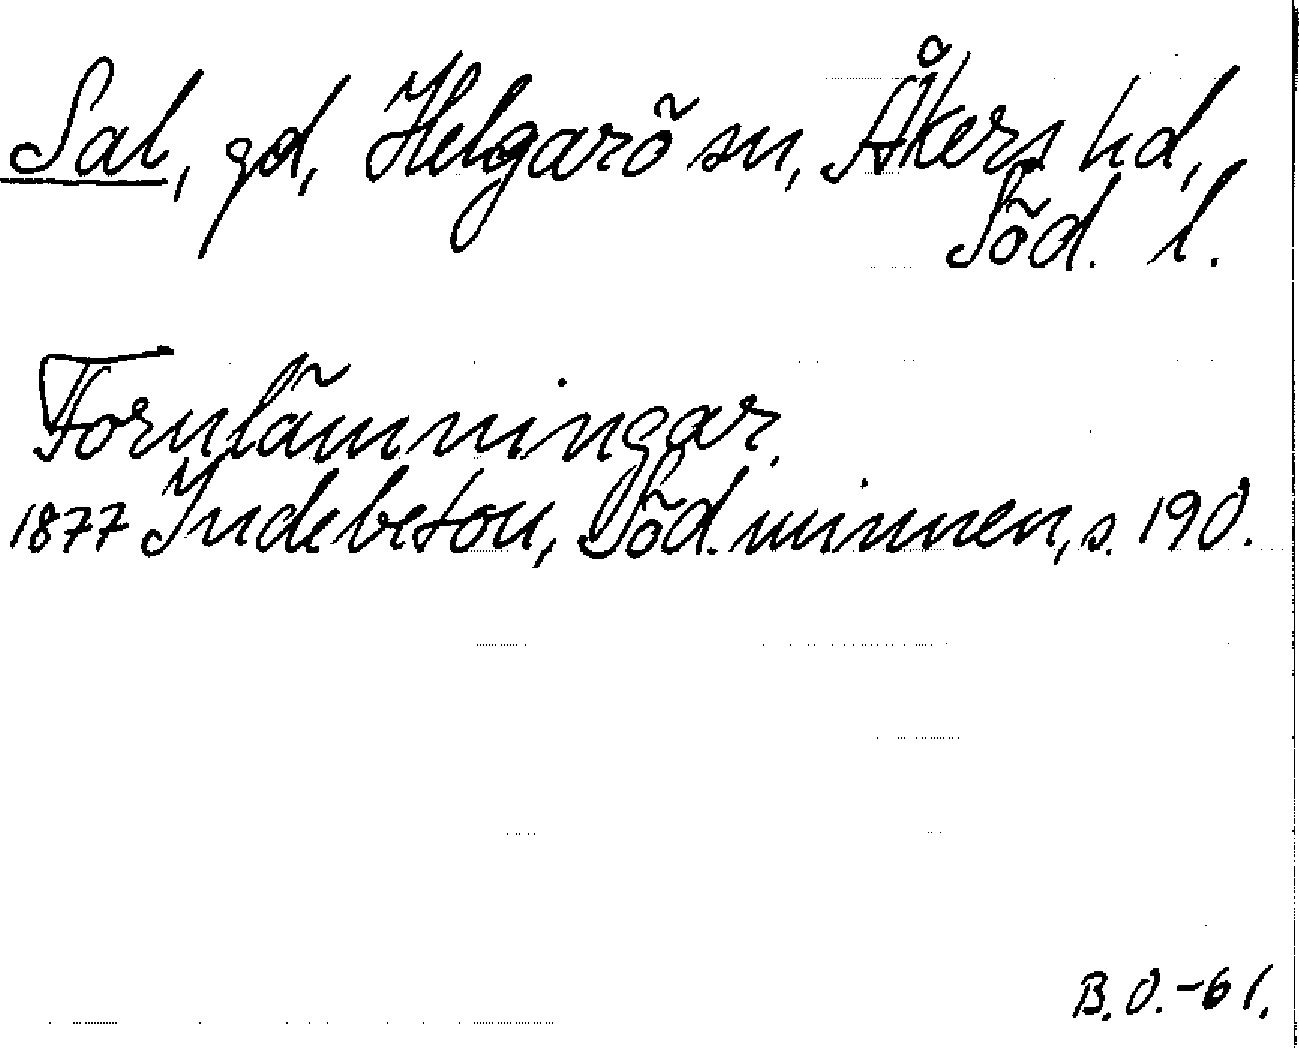 Sal, gd, Helgarö sn, Åkers hd,
Söd. l.
Fornlämningar.
1877 Indebetou, Söd. minnen, s. 190.
B.O.-61.